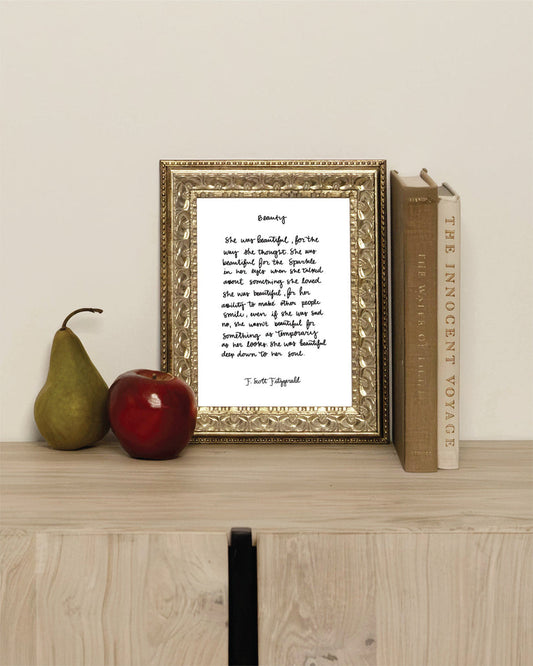 Beauty
She was beautiful, for the
way she thought. She was
beautiful for the sparkle
in her eyes when she talked
about something she loved
She was beautiful, for her
ability to make other people
smile, even if she was sad
no, she wasn't beautiful for
something as temporary
as her looks. She was beautiful
deep down to her soul.
F. Scott Fitzgerald
THE WATER OF
THE INNOCENT VOYAGE